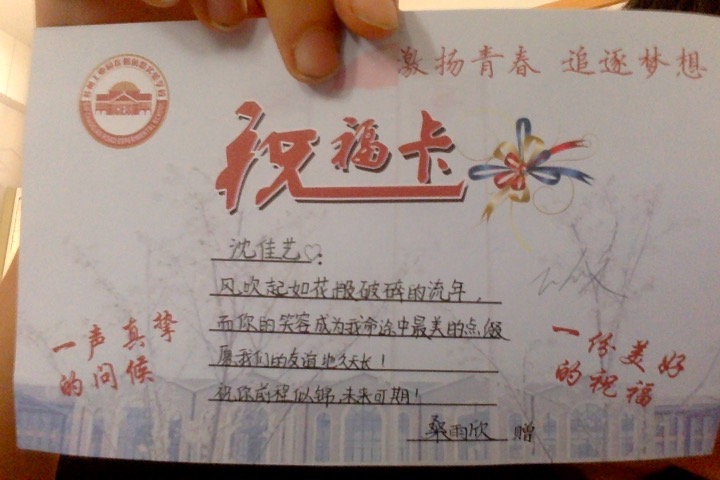 激扬青春 追逐梦想
祝福卡
沈佳艺♡:
风吹起如花般破碎的流年，
而你的笑容成为我命途中最美的点缀
愿我们的友谊地久天长！
祝你前程似锦，未来可期！
桑雨欣 赠
一声真挚
的问候
一份美好
的祝福